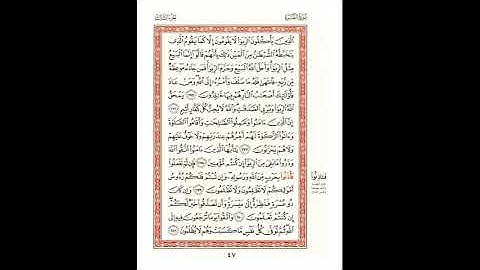 سُورَةُ البَقَرَةِ
الجزء الثالث
الَّذِينَ يَأْكُلُونَ الرِّبَوٰا لَا يَقُومُونَ إِلَّا كَمَا يَقُومُ الَّذِى
يَتَخَبَّطُهُ الشَّيْطَٰنُ مِنَ الْمَسِّ ذَٰلِكَ بِأَنَّهُمْ قَالُوا إِنَّمَا الْبَيْعُ
مِثْلُ الرِّبَوٰا وَأَحَلَّ اللَّهُ الْبَيْعَ وَحَرَّمَ الرِّبَوٰا فَمَن جَاءَهُ مَوْعِظَةٌ
مِّن رَّبِّهِ فَانتَهَىٰ فَلَهُ مَا سَلَفَ وَأَمْرُهُ إِلَى اللَّهِ وَمَنْ عَادَ
فَأُولَٰئِكَ أَصْحَٰبُ النَّارِ هُمْ فِيهَا خَٰلِدُونَ ٢٧٥ يَمْحَقُ
اللَّهُ الرِّبَوٰا وَيُرْبِى الصَّدَقَٰتِ وَاللَّهُ لَا يُحِبُّ كُلَّ كَفَّارٍ أَثِيمٍ ٢٧٦
إِنَّ الَّذِينَ ءَامَنُوا وَعَمِلُوا الصَّٰلِحَٰتِ وَأَقَامُوا الصَّلَوٰةَ
وَءَاتَوُا الزَّكَوٰةَ لَهُمْ أَجْرُهُمْ عِندَ رَبِّهِمْ وَلَا خَوْفٌ عَلَيْهِمْ
وَلَا هُمْ يَحْزَنُونَ ٢٧٧ يَٰأَيُّهَا الَّذِينَ ءَامَنُوا اتَّقُوا اللَّهَ
وَذَرُوا مَا بَقِىَ مِنَ الرِّبَوٰا إِن كُنتُم مُّؤْمِنِينَ ٢٧٨ فَإِن لَّمْ تَفْعَلُوا
فَـَٔاذِنُوا بِحَرْبٍ مِّنَ اللَّهِ وَرَسُولِهِ وَإِن تُبْتُمْ فَلَكُمْ رُءُوسُ
أَمْوَٰلِكُمْ لَا تَظْلِمُونَ وَلَا تُظْلَمُونَ ٢٧٩ وَإِن كَانَ
ذُو عُسْرَةٍ فَنَظِرَةٌ إِلَىٰ مَيْسَرَةٍ وَأَن تَصَّدَّقُوا خَيْرٌ لَّكُمْ
إِن كُنتُمْ تَعْلَمُونَ ٢٨٠ وَاتَّقُوا يَوْمًا تُرْجَعُونَ فِيهِ إِلَى
اللَّهِ ثُمَّ تُوَفَّىٰ كُلُّ نَفْسٍ مَّا كَسَبَتْ وَهُمْ لَا يُظْلَمُونَ ٢٨١
فَـَٔاذِنُوا
٤٧